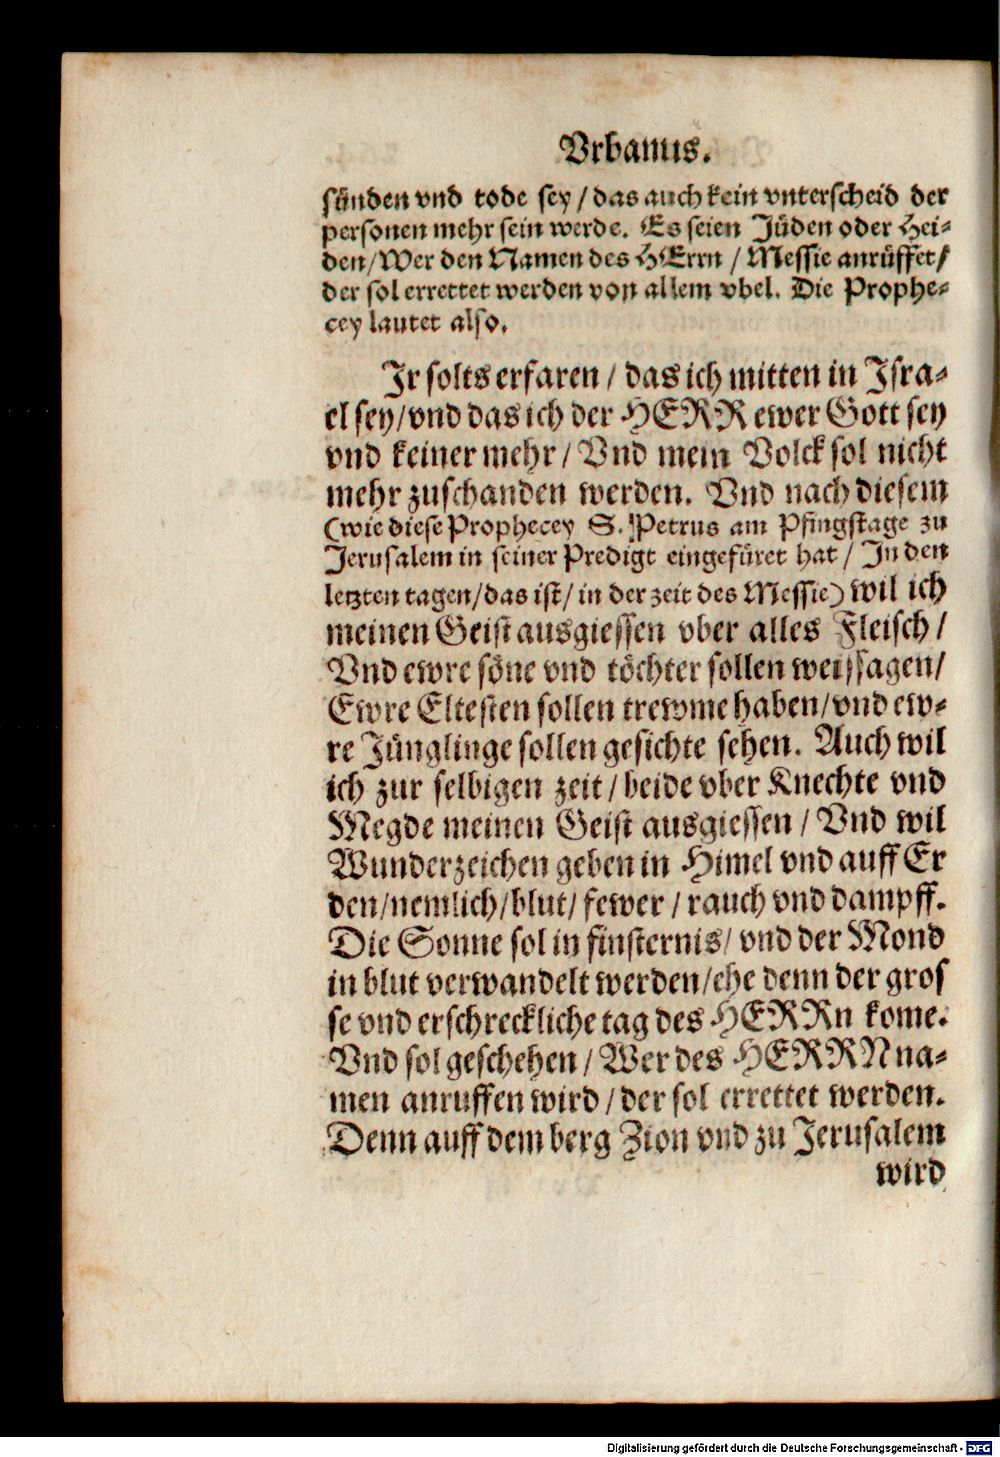 Vrbanus.
sünden vnd tode sey / das auch kein vnterscheid der
personen mehr sein werde. Es seien Jüden oder Hei-
den/Wer den Namen des HErrn / Messie anrüffet/
der sol errettet werden von allem vbel. Die Prophe-
cey lautet also.
Jr solts erfaren / das ich mitten in Jsra-
el sey/vnd das ich der HERR ewer Gott sey
vnd keiner mehr / Vnd mein Volck sol nicht
mehr zuschanden werden. Vnd nach diesem
(wie diese Prophecey S. Petrus am Pfingstage zu
Jerusalem in seiner Predigt eingefüret hat / Jn den
letzten tagen/das ist/ in der zeit des Messie) wil ich
meinen Geist ausgiessen vber alles Fleisch /
Vnd ewre söne vnd töchter sollen weissagen/
Ewre Eltesten sollen trewme haben/vnd ew-
re Jünglinge sollen gesichte sehen. Auch wil
ich zur selbigen zeit / beide vber Knechte vnd
Megde meinen Geist ausgiessen / Vnd wil
Wunderzeichen geben in Himel vnd auff Er
den/nemlich/blut/ fewer / rauch vnd dampff.
Die Sonne sol in finsternis/ vnd der Mond
in blut verwandelt werden/ehe denn der gros
se vnd erschreckliche tag des HERRn kome.
Vnd sol geschehen / Wer des HERRN na-
men anruffen wird / der sol errettet werden.
Denn auff dem berg Zion vnd zu Jerusalem
wird
Digitalisierung gefördert durch die Deutsche Forschungsgemeinschaft - DFG